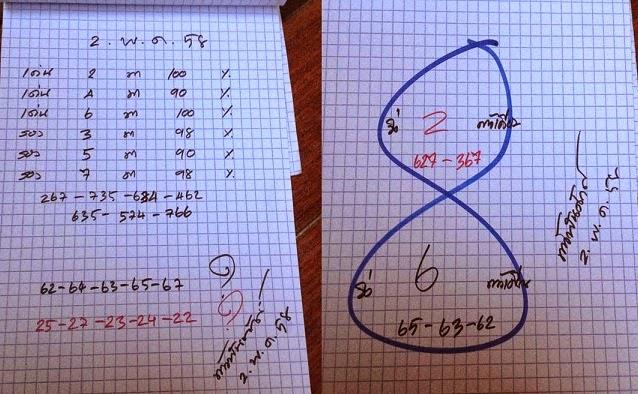 2 . พ . ค . 58
เด่น 2 ส 100 %
เด่น 4 ส 90 %
เด่น 6 ส 100 %
รอง 3 ส 98 %
รอง 5 ส 90 %
รอง 7 ส 98 %
267 - 735 - 684 - 462
635 - 574 - 766
62 - 64 - 63 - 65 - 67
25 - 27 - 23 - 24 - 22
2 . พ . ค . 58
2
627 - 367
6
65 - 63 - 62
2 . พ . ค . 58